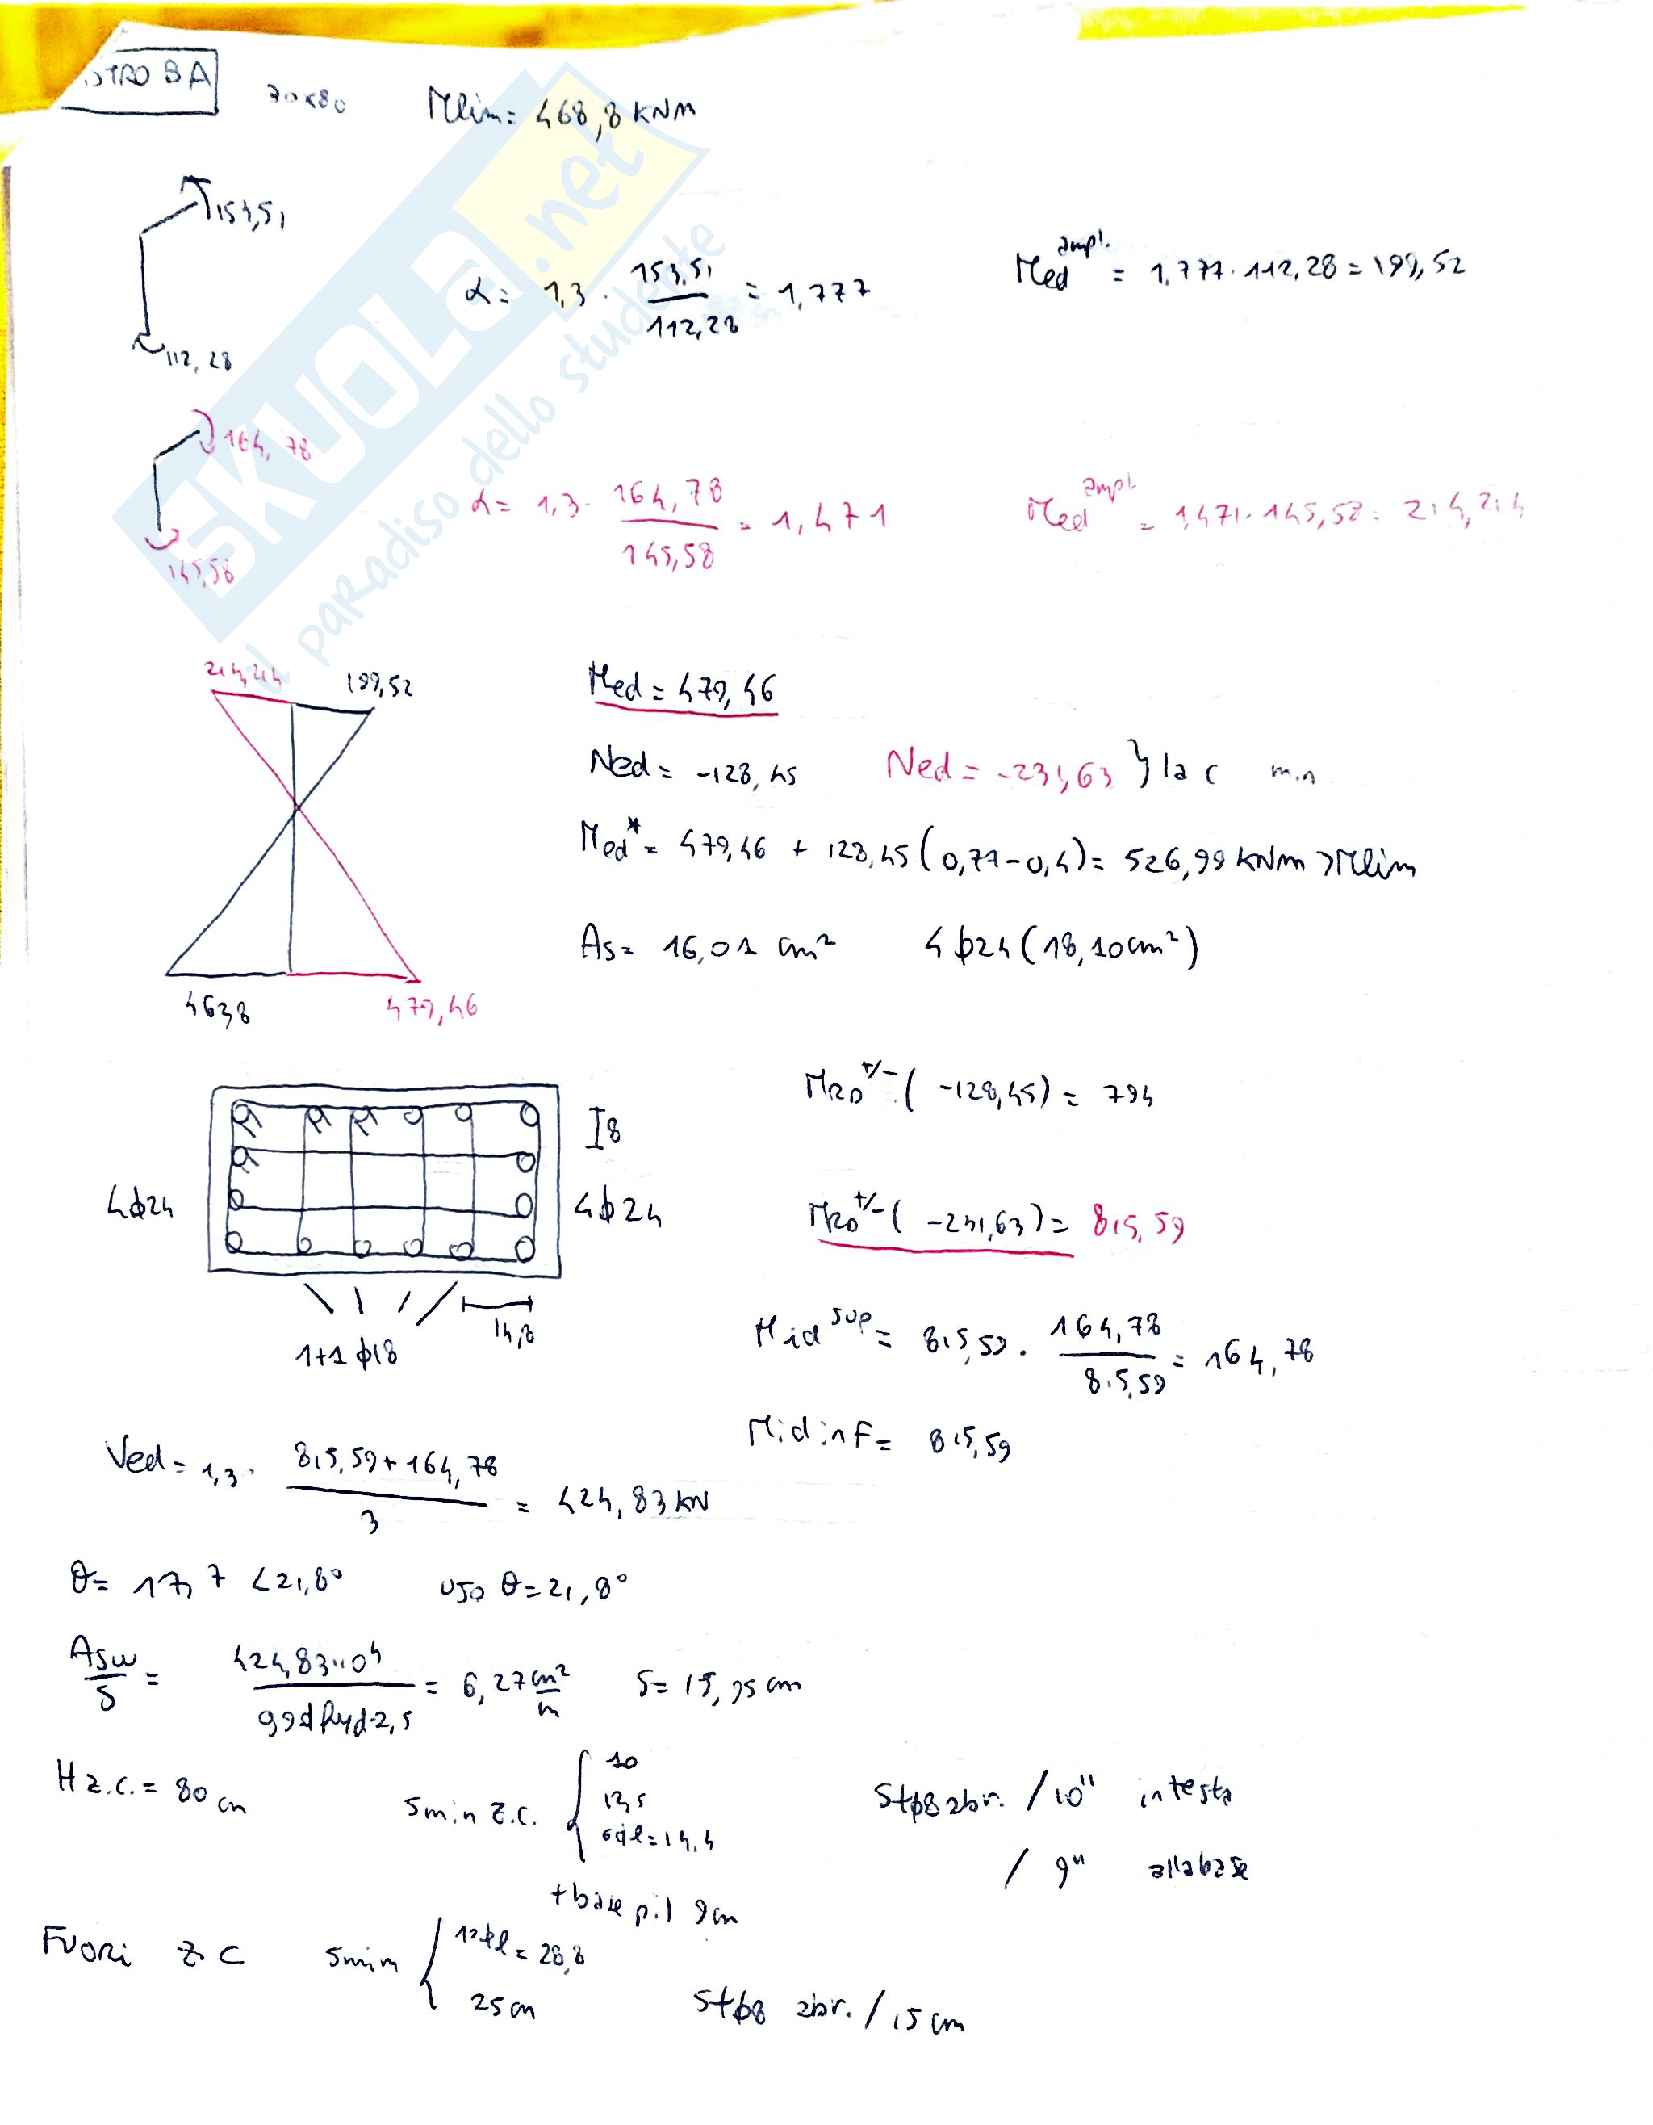 STRO BA
30x80 Mlim= 468,8 KNm
153,51
112,28
α= 1,3 · 153,51 / 112,28 = 1,777
Med ampl. = 1,777 · 112,28 = 199,52
164,78
145,58
α= 1,3 · 164,78 / 145,58 = 1,471
Med ampl. = 1,471 · 145,58 = 214,214
SKUOLA.net
il paradiso dello studente
214,214 199,52
463,8 479,46
Med = 479,46
Ned = -128,45 Ned = -231,63 } la c min
Med* = 479,46 + 128,45 (0,77-0,4) = 526,99 KNm > Mlim
As= 16,01 cm² 4ϕ24 (18,10cm²)
I8
4ϕ24 4ϕ24
14,8
1+1 ϕ18
MRD+/- (-128,45) = 794
MRD+/- (-231,63) = 815,59
Mid sup = 815,59 · 164,78 / 815,59 = 164,78
Mid inf = 815,59
Ved = 1,3 · 815,59 + 164,78 / 3 = 424,83 KN
θ= 17,7 < 21,8° uso θ=21,8°
Asw / s = 424,83·10⁴ / 0,9d fyd·2,5 = 6,27 cm²/m s= 15,95 cm
H z.c. = 80 cm
smin z.c. { 10
13,5
6ϕl = 14,4
+ base pil 9cm
Stϕ8 2br. /10" in testa
/ 9" alla base
Fuori z c smin { 12ϕl = 28,8
25 cm
Stϕ8 2br. / 15 cm